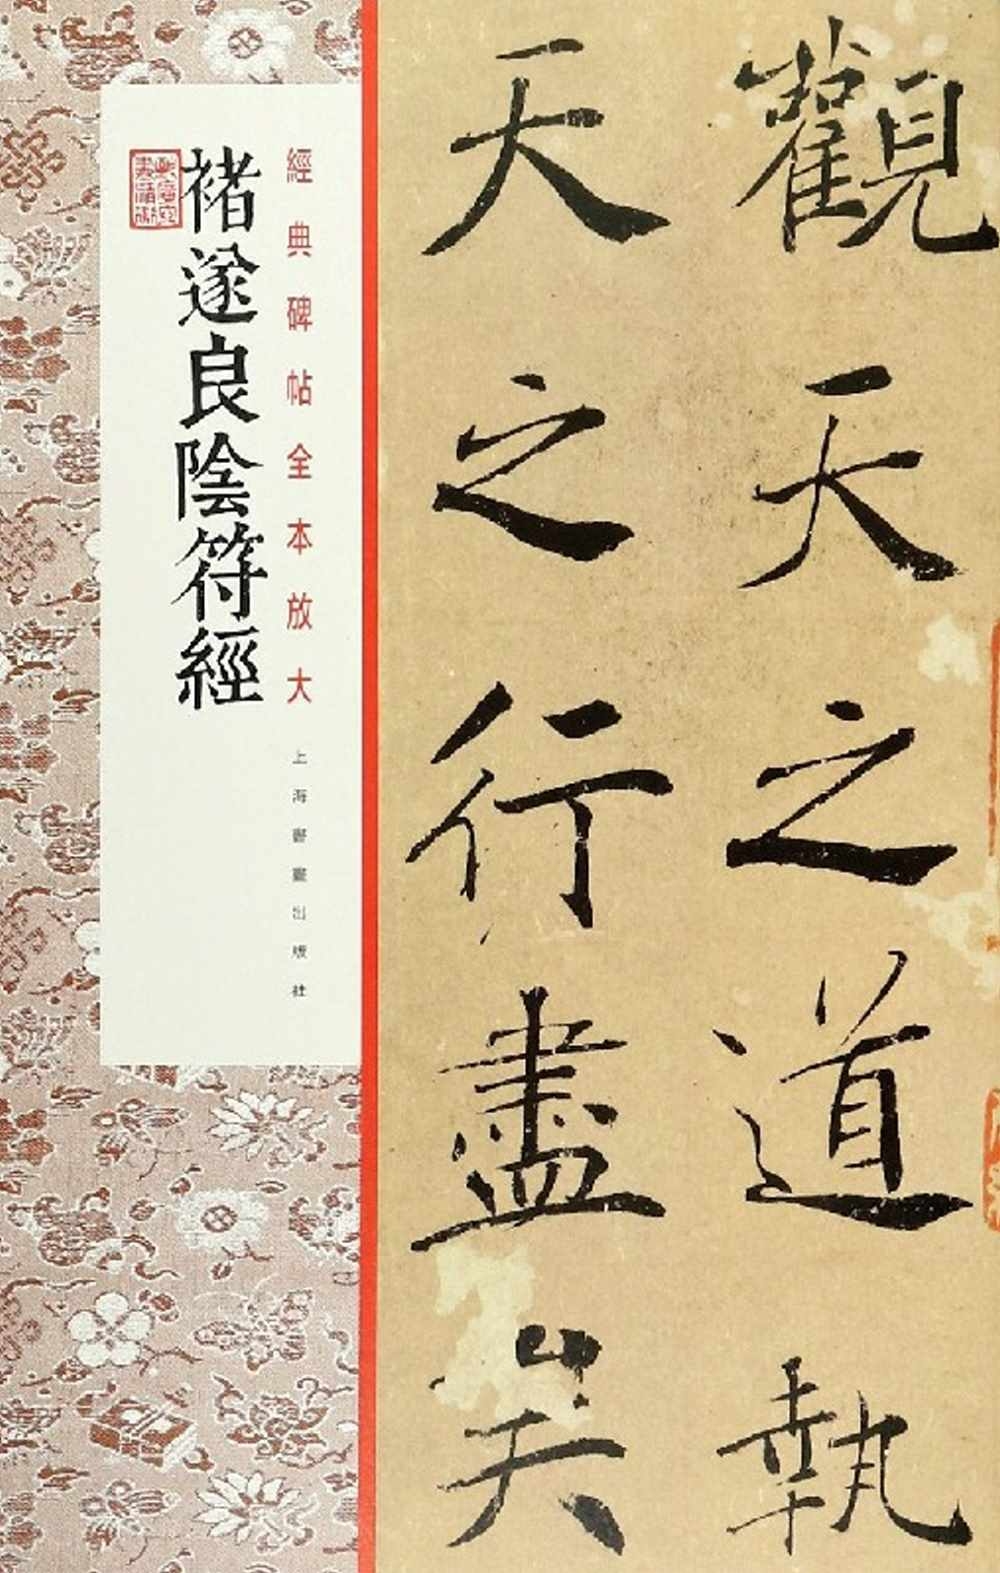 觀天之道執
天之行盡矣
經典碑帖全本放大
褚遂良陰符經
上海書畫出版社